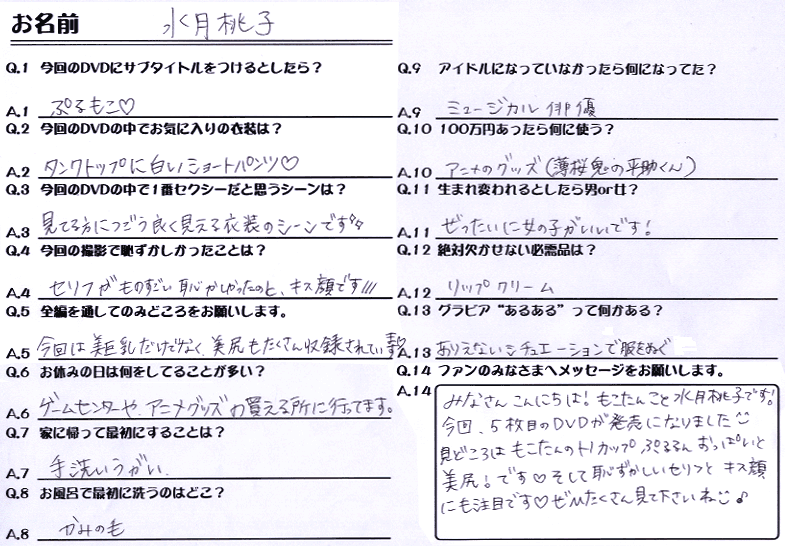 お名前 水月桃子
Q.1 今回のDVDにサブタイトルをつけるとしたら？
A.1 ぷるもこ♡
Q.2 今回のDVDの中でお気に入りの衣装は？
A.2 タンクトップに白いショートパンツ♡
Q.3 今回のDVDの中で1番セクシーだと思うシーンは？
A.3 見てる方につごう良く見える衣装のシーンです
Q.4 今回の撮影で恥ずかしかったことは？
A.4 セリフがものすごい恥かしかったのと、キス顔です///
Q.5 全編を通してのみどころをお願いします。
A.5 今回は美巨乳だけでなく、美尻もたくさん収録されています♡
Q.6 お休みの日は何をしてることが多い？
A.6 ゲームセンターや、アニメグッズの買える所に行ってます。
Q.7 家に帰って最初にすることは？
A.7 手洗いうがい。
Q.8 お風呂で最初に洗うのはどこ？
A.8 かみのも
Q.9 アイドルになっていなかったら何になってた？
A.9 ミュージカル俳優
Q.10 100万円あったら何に使う？
A.10 アニメのグッズ(薄桜鬼の平助くん)
Q.11 生まれ変われるとしたら男or女？
A.11 ぜったいに女の子がいいです！
Q.12 絶対欠かせない必需品は？
A.12 リップクリーム
Q.13 グラビア“あるある”って何かある？
A.13 ありえないシチュエーションで服をぬぐ
Q.14 ファンのみなさまへメッセージをお願いします。
A.14 みなさんこんにちは！もこたんこと水月桃子です！
今回、5枚目のDVDが発売になりました
見どころはもこたんのHカップぷるるんおっぱいと
美尻！です♡そして恥ずかしいセリフとキス顔
にも注目です♡ぜひたくさん見て下さいね♪